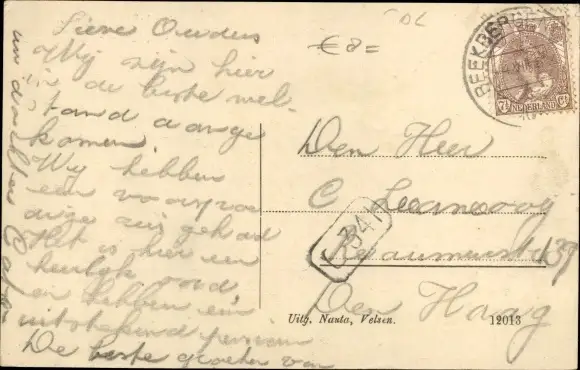 Lieve Ouders
Wij zijn hier
in de beste wel-
stand aange
komen.
Wij hebben
een voorspoe
dige reis gehad
Het is hier een
heerlijk oord
en hebben een
uitstekend pension
De beste groeten van
DL
€ 8=
BEEKBERGEN
7½ Ct
NEDERLAND
Den Heer
C
341
Reaumurstr 139
Den Haag
Uitg. Nauta, Velsen.
12013